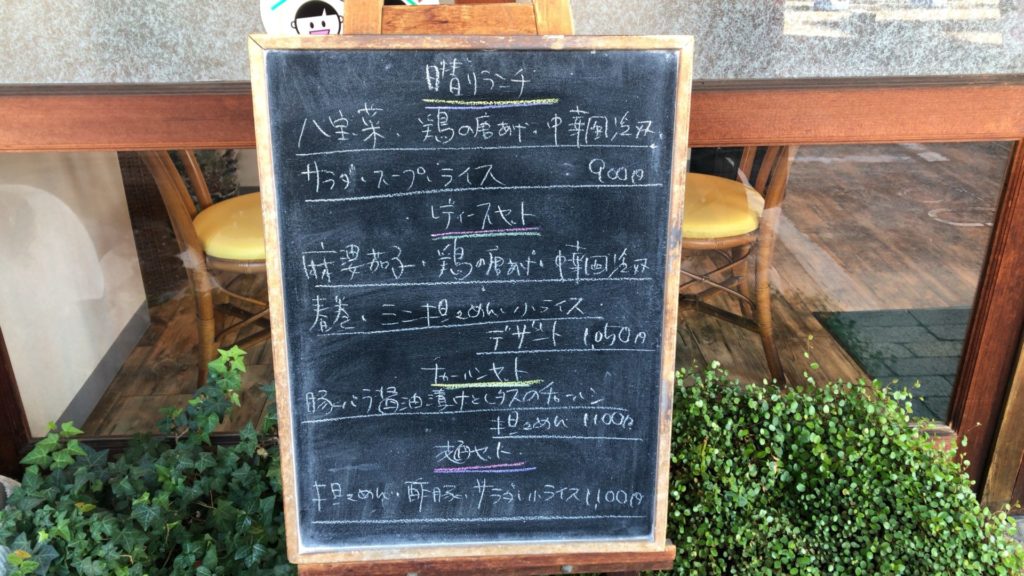 晴れランチ
八宝菜、鶏の唐あげ、中華風冷奴、
サラダ、スープ、ライス 900円
レディースセット
麻婆茄子、鶏の唐あげ、中華風冷奴
春巻、ミニ担々めん、小ライス、
デザート 1,050円
チャーハンセット
豚バラ醤油漬けとレタスのチャーハン
担々めん 1100円
麺セット
担々めん、酢豚、サラダ、小ライス 1,100円